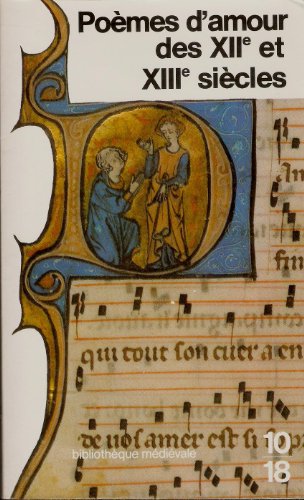 Poèmes d'amour
des XIIe et
XIIIe siècles
An
fin
qui tout son cuer a en
de vos amer est si
10
18
bibliothèque médiévale